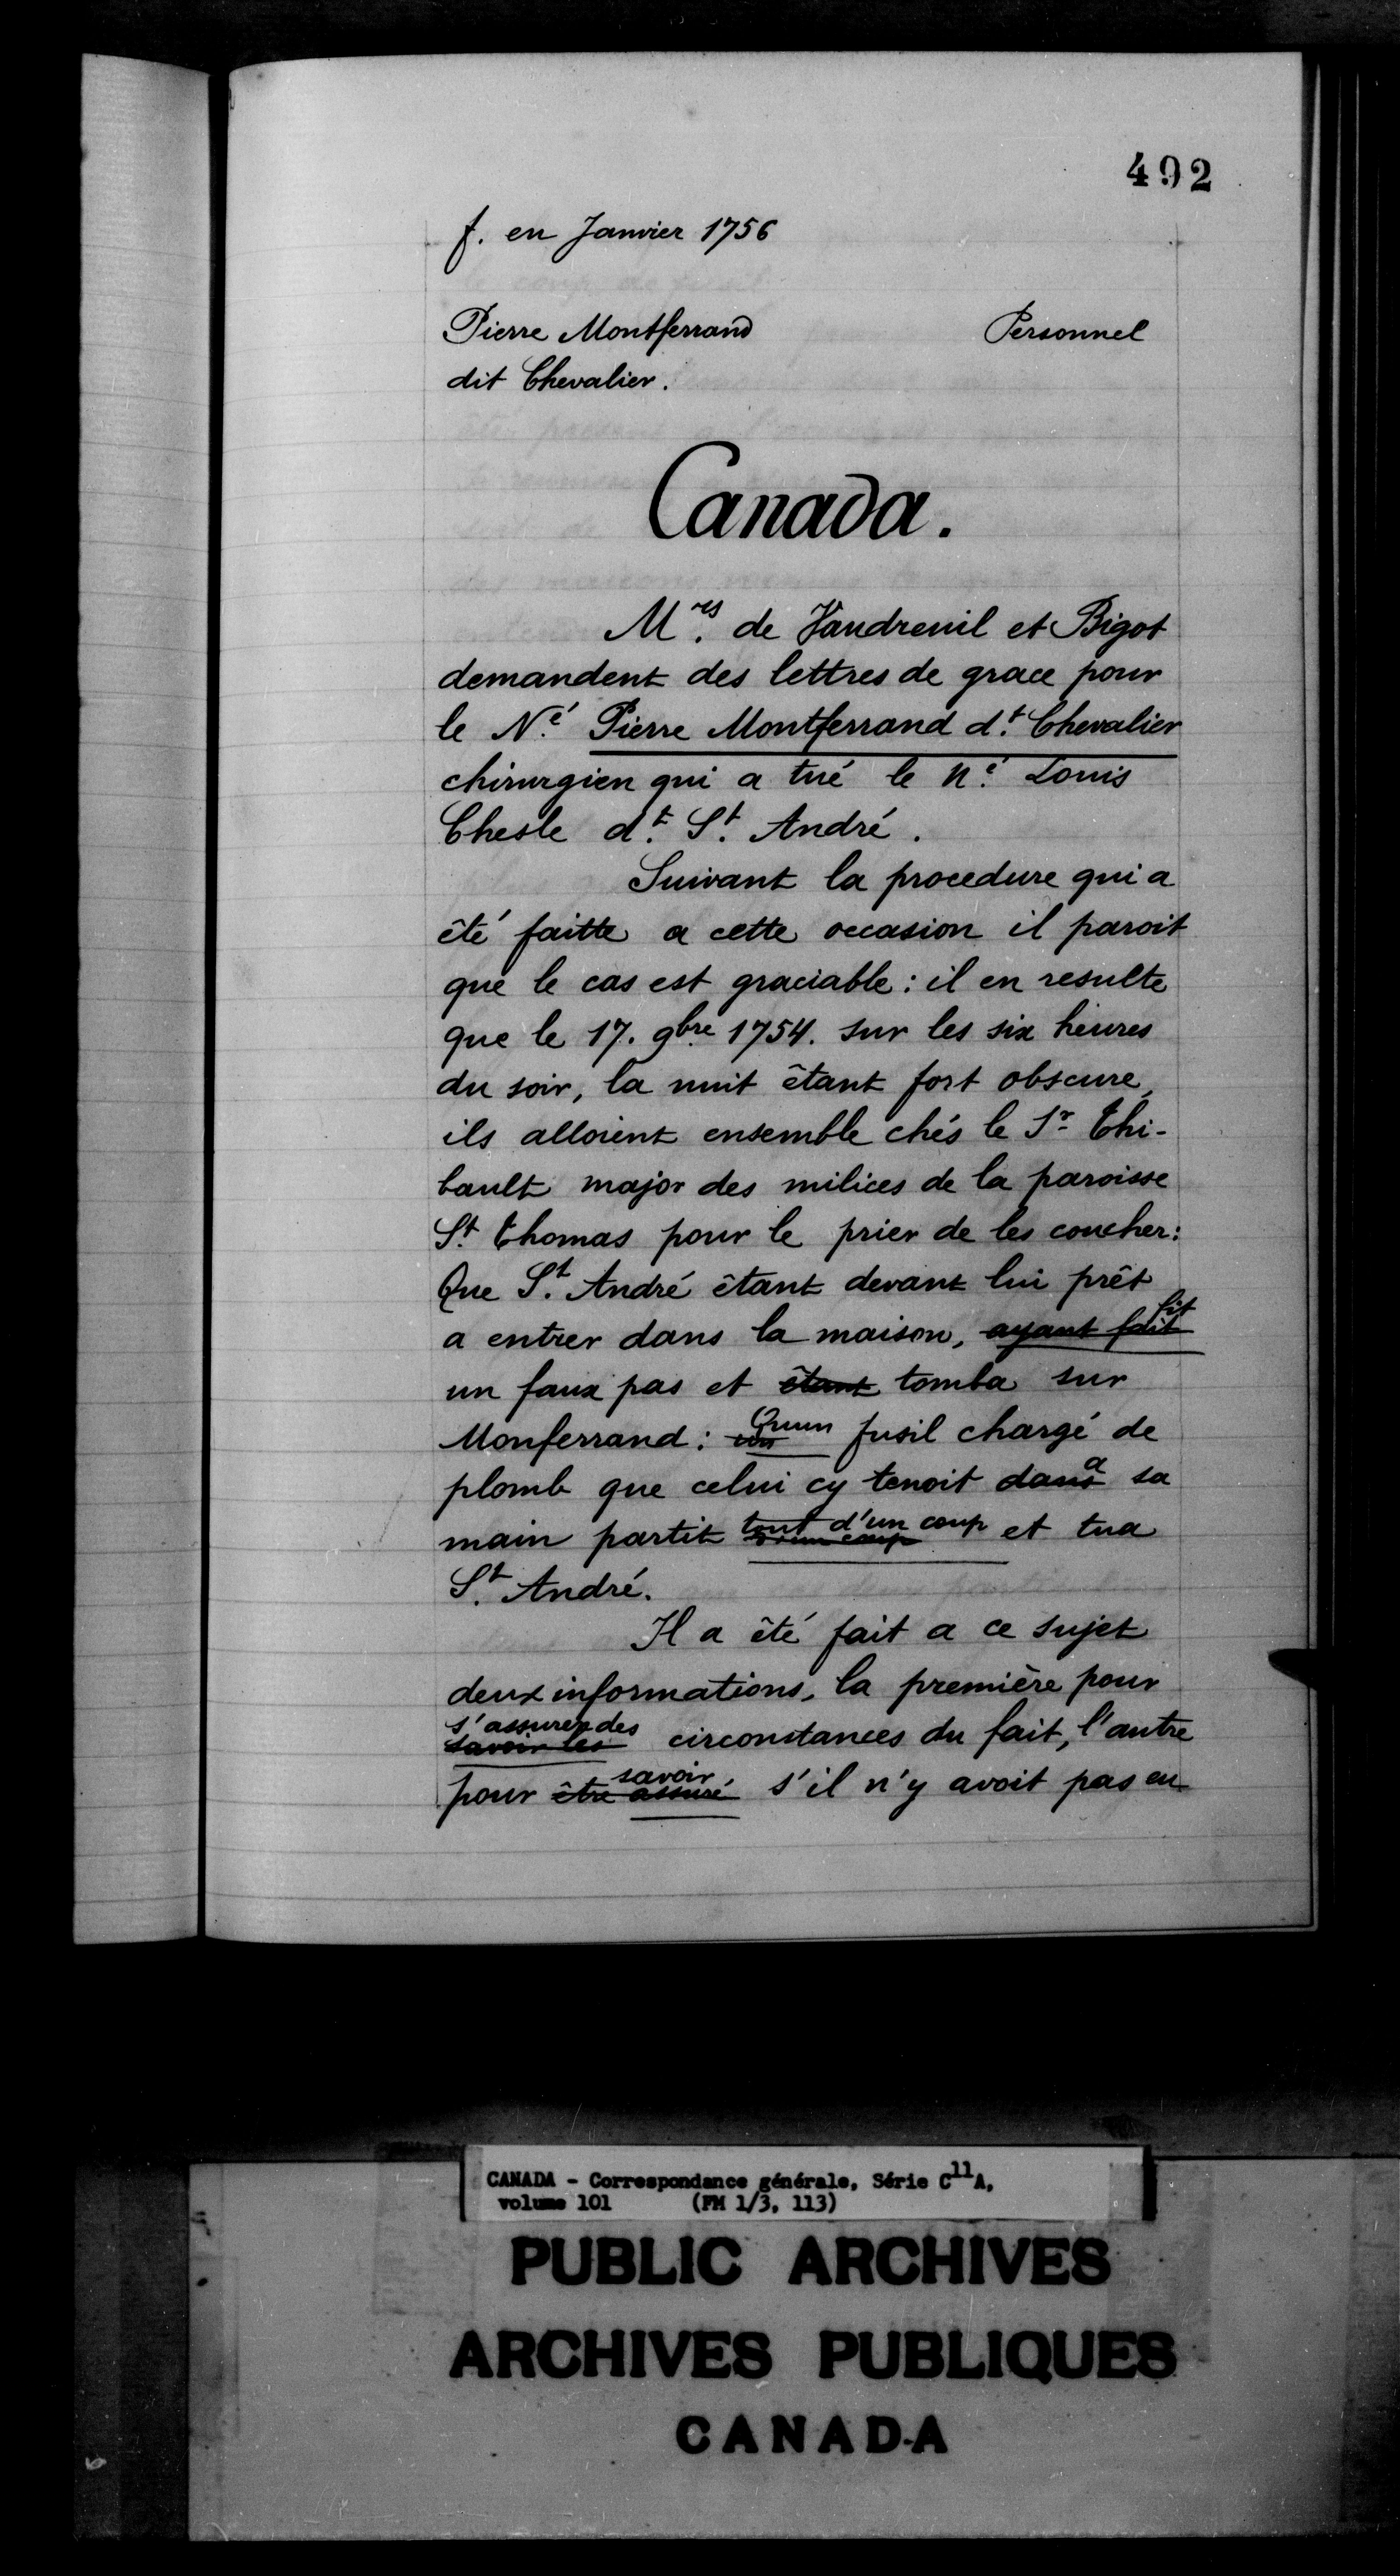 492
f. en Janvier 1756
Pierre Montferrand Personnel
dit Chevalier.
Canada.
Mrs. de Vaudreuil et Bigot
demandent des lettres de grace pour
le Né. Pierre Montferrand dt. Chevalier
chirurgien qui a tué le né. Louis
Chesle dt. St. André.
Suivant la procedure qui a
êté faitte a cette occasion il paroit
que le cas est graciable : il en resulte
que le 17. 9bre 1754. sur les six heures
du soir, la nuit êtant fort obscure,
ils alloient ensemble chés le Sr. Thi-
bault major des milices de la paroisse
St. Thomas pour le prier de les coucher :
Que St. André êtant devant lui prêt
fit
a entrer dans la maison, ayant fait
un faux pas et êtant tomba sur
Quun
Monferrand : un fusil chargé de
a
plomb que celui cy tenoit dans sa
tout d'un coup
main partit d'un coup et tua
St. André.
Il a êté fait a ce sujet
deux informations, la première pour
s'assurer des
savoir les circonstances du fait, l'autre
savoir
pour être assuré s'il n'y avoit pas eu
CANADA - Correspondance générale, Série C11A,
volume 101 (FM 1/3, 113)
PUBLIC ARCHIVES
ARCHIVES PUBLIQUES
CANADA